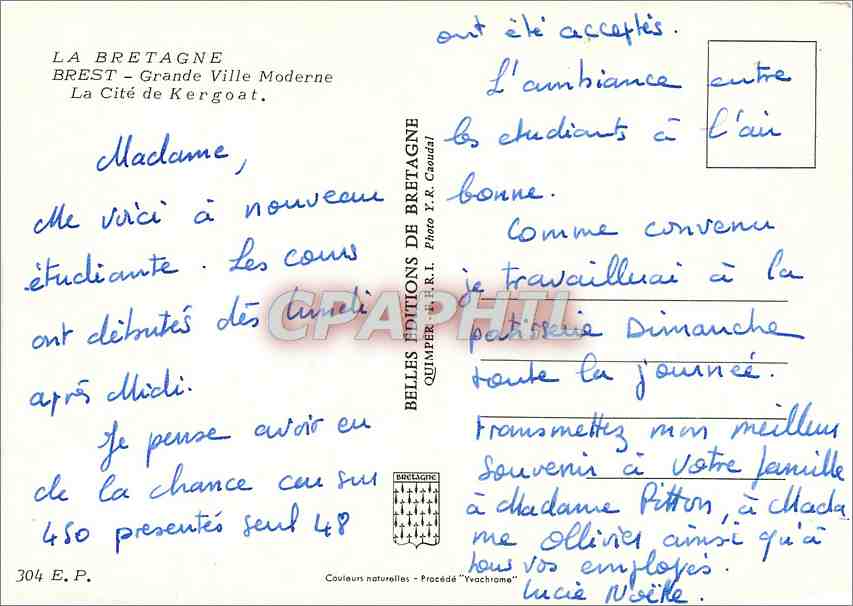 LA BRETAGNE
BREST - Grande Ville Moderne
La Cité de Kergoat.
Madame,
Me voici à nouveau
étudiante. Les cours
ont débutés dès lundi
après Midi.
Je pense avoir eu
de la chance car sur
450 présentés seul 48
304 E. P.
BELLES EDITIONS DE BRETAGNE
QUIMPER - I.F.R.I. Photo Y. R. Caoudal
BRETAGNE
Couleurs naturelles - Procédé "Yvachrome"
CPAPHIL
ont été acceptés.
L'ambiance entre
les étudiants à l'air
bonne.
Comme convenu
je travaillerai à la
patisserie Dimanche
toute la journée.
Transmettez mon meilleur
souvenir à votre famille
à Madame Pitton, à Mada
me Ollivier ainsi qu'à
tous vos employés.
Lucie Noëlle.